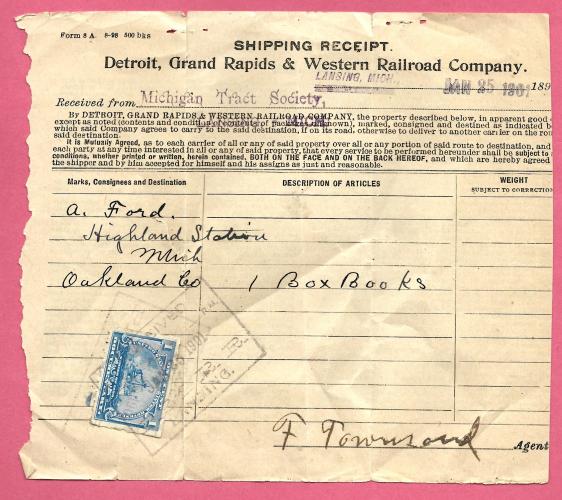 Form 8 A. 8-98 500 bks
SHIPPING RECEIPT.
Detroit, Grand Rapids & Western Railroad Company.
LANSING, MICH., JAN 25 1901 189
Received from Michigan Tract Society,
By DETROIT, GRAND RAPIDS & WESTERN RAILROAD COMPANY, the property described below, in apparent good
except as noted (contents and condition of contents of packages unknown), marked, consigned and destined as indicated be
which said Company agrees to carry to the said destination, if on its road, otherwise to deliver to another carrier on the ro
said destination.
It is Mutually Agreed, as to each carrier of all or any of said property over all or any portion of said route to destination, and
each party at any time interested in all or any of said property, that every service to be performed hereunder shall be subject
conditions, whether printed or written, herein contained, BOTH ON THE FACE AND ON THE BACK HEREOF, and which are hereby agreed
the shipper and by him accepted for himself and his assigns as just and reasonable.
Marks, Consignees and Destination DESCRIPTION OF ARTICLES WEIGHT
SUBJECT TO CORRECTION
A. Ford.
Highland Station
Mich
Oakland Co 1 Box Books
F Townsend Agent